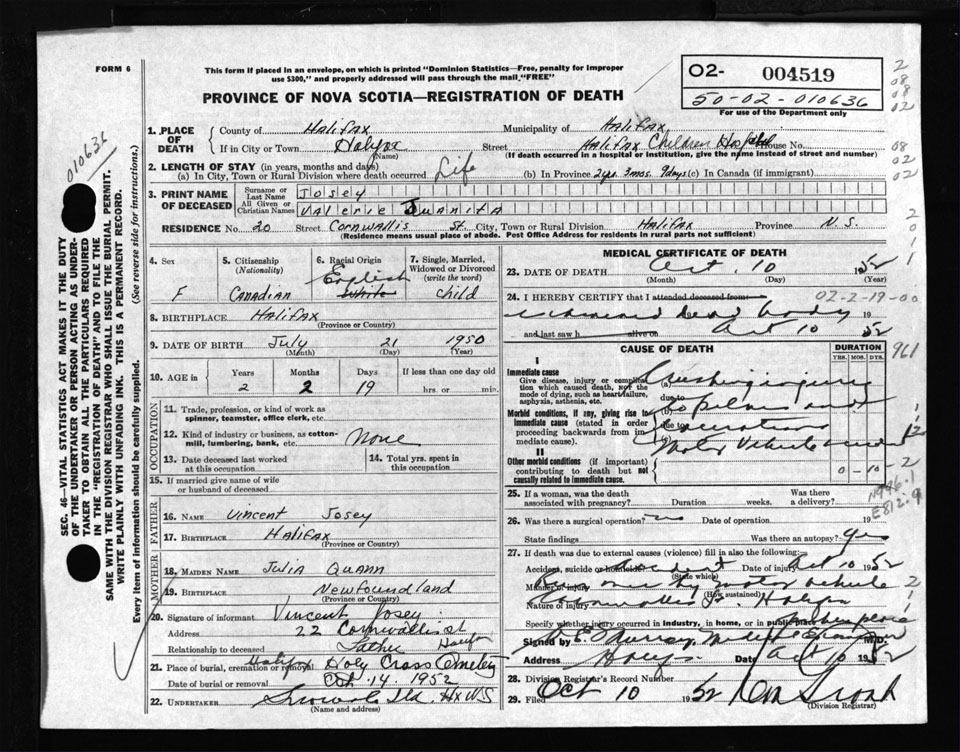 FORM 6
This form if placed in an envelope, on which is printed "Dominion Statistics—Free, penalty for improper
use $300," and properly addressed will pass through the mail "FREE"
PROVINCE OF NOVA SCOTIA—REGISTRATION OF DEATH
O2- 004519
50-02-010636
For use of the Department only
2
08
08
02
08
02
02
2
0
1
1
010636
SEC. 46—VITAL STATISTICS ACT MAKES IT THE DUTY
OF THE UNDERTAKER OR PERSON ACTING AS UNDER-
TAKER TO OBTAIN ALL THE PARTICULARS REQUIRED
IN THE "REGISTRATION OF DEATH" AND TO FILE THE
SAME WITH THE DIVISION REGISTRAR WHO SHALL ISSUE THE BURIAL PERMIT.
WRITE PLAINLY WITH UNFADING INK. THIS IS A PERMANENT RECORD.
Every item of information should be carefully supplied. (See reverse side for instructions.)
1. PLACE OF DEATH
County of Halifax Municipality of Halifax
If in City or Town Halifax Street Halifax Children Hospital House No.
(Name) (If death occurred in a hospital or institution, give the name instead of street and number)
2. LENGTH OF STAY (in years, months and days)
(a) In City, Town or Rural Division where death occurred Life (b) In Province 2 yrs. 3 mos. 9 days (c) In Canada (if immigrant)
3. PRINT NAME OF DECEASED
Surname or Last Name Josey
All Given or Christian Names Valerie Juanita
RESIDENCE No. 20 Street Cornwallis St. City, Town or Rural Division Halifax Province N.S.
(Residence means usual place of abode. Post Office Address for residents in rural parts not sufficient)
4. Sex F
5. Citizenship (Nationality) Canadian
6. Racial Origin English White
7. Single, Married, Widowed or Divorced (write the word) child
8. BIRTHPLACE Halifax
(Province or Country)
9. DATE OF BIRTH July 21 1950
(Month) (Day) (Year)
10. AGE in Years Months Days If less than one day old
2 2 19 hrs. or min.
OCCUPATION
11. Trade, profession, or kind of work as
spinner, teamster, office clerk, etc.
12. Kind of industry or business, as cotton-
mill, lumbering, bank, etc. None
13. Date deceased last worked
at this occupation
14. Total yrs. spent in
this occupation
15. If married give name of wife
or husband of deceased
FATHER
16. NAME Vincent Josey
17. BIRTHPLACE Halifax
(Province or Country)
MOTHER
18. MAIDEN NAME Julia Quann
19. BIRTHPLACE Newfoundland
(Province or Country)
20. Signature of informant Vincent Josey
Address 22 Cornwallis st Halifax
Relationship to deceased Father
21. Place of burial, cremation or removal Halifax Holy Cross Cemetery
Date of burial or removal Oct. 14. 1952
22. UNDERTAKER Ltd. Hx NS
(Name and address)
MEDICAL CERTIFICATE OF DEATH
23. DATE OF DEATH Oct. 10 1952
(Month) (Day) (Year)
24. I HEREBY CERTIFY that I attended deceased from 02-2-19-00
dead body 19
and last saw h alive on Oct 10 1952
CAUSE OF DEATH
DURATION
YRS. MOS. DYS.
961
I
Immediate cause
Give disease, injury or complication
which caused death, not the
mode of dying, such as heart failure,
asphyxia, asthenia, etc.
(a) Crushing injury
due to
Morbid conditions, if any, giving rise to
immediate cause (stated in order
proceeding backwards from immediate
cause).
to pelvis and
due to
lacerations
Motor Vehicle
II
Other morbid conditions (if important)
contributing to death but not
causally related to immediate cause.
0-10-2
N996.1
E812.9
25. If a woman, was the death
associated with pregnancy? Duration weeks. Was there
a delivery?
26. Was there a surgical operation? no Date of operation 19
State findings Was there an autopsy? yes
27. If death was due to external causes (violence) fill in also the following:
Accident, suicide or homicide Accident Date of injury Oct 10 1952
(State which)
Manner of injury Run over by motor vehicle
(How sustained)
Nature of injury Cornwallis St. Halifax
Specify whether injury occurred in industry, in home, or in public place
Signed by Murray Medical Examiner M.D.
Address Date Oct 10 1952
28. Division Registrar's Record Number
29. Filed Oct 10 1952
(Division Registrar)